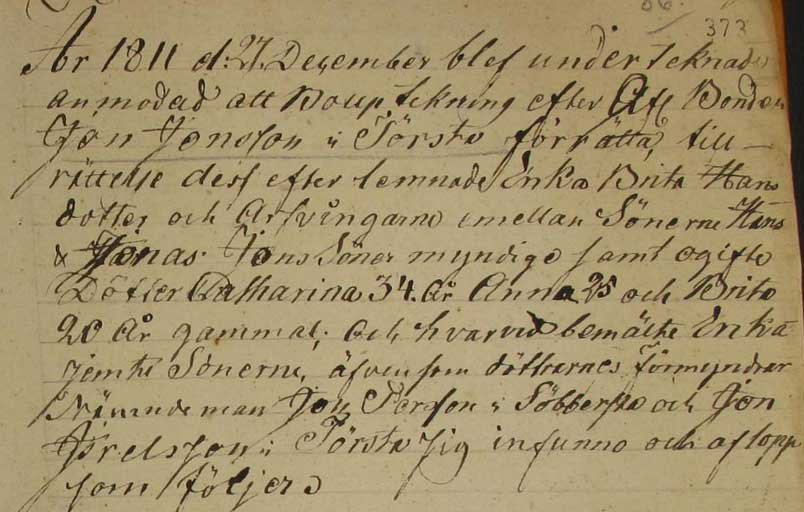 373
År 1811 d: 27. December blef underteknade
anmodad att Bouptekning efter Afl Bonden
Jon Jonsson i Törsta förrätta, till
rättelse dess efterlemnade Enka Brita Hans
dotter och Arfvingarne emellan Sönerne Hans
& Jonas Jons Söner myndige samt ogifte
Dötter Catharina 34. År Anna 25 och Brita
20 År gammal; Och hvarvid bemälte Enka
jemte Sönerne, äfvensom döttrarnes Förmyndrar
Nämndeman Jon Persson i och Jon
i Törsta sig infunno och aflopp
som följer